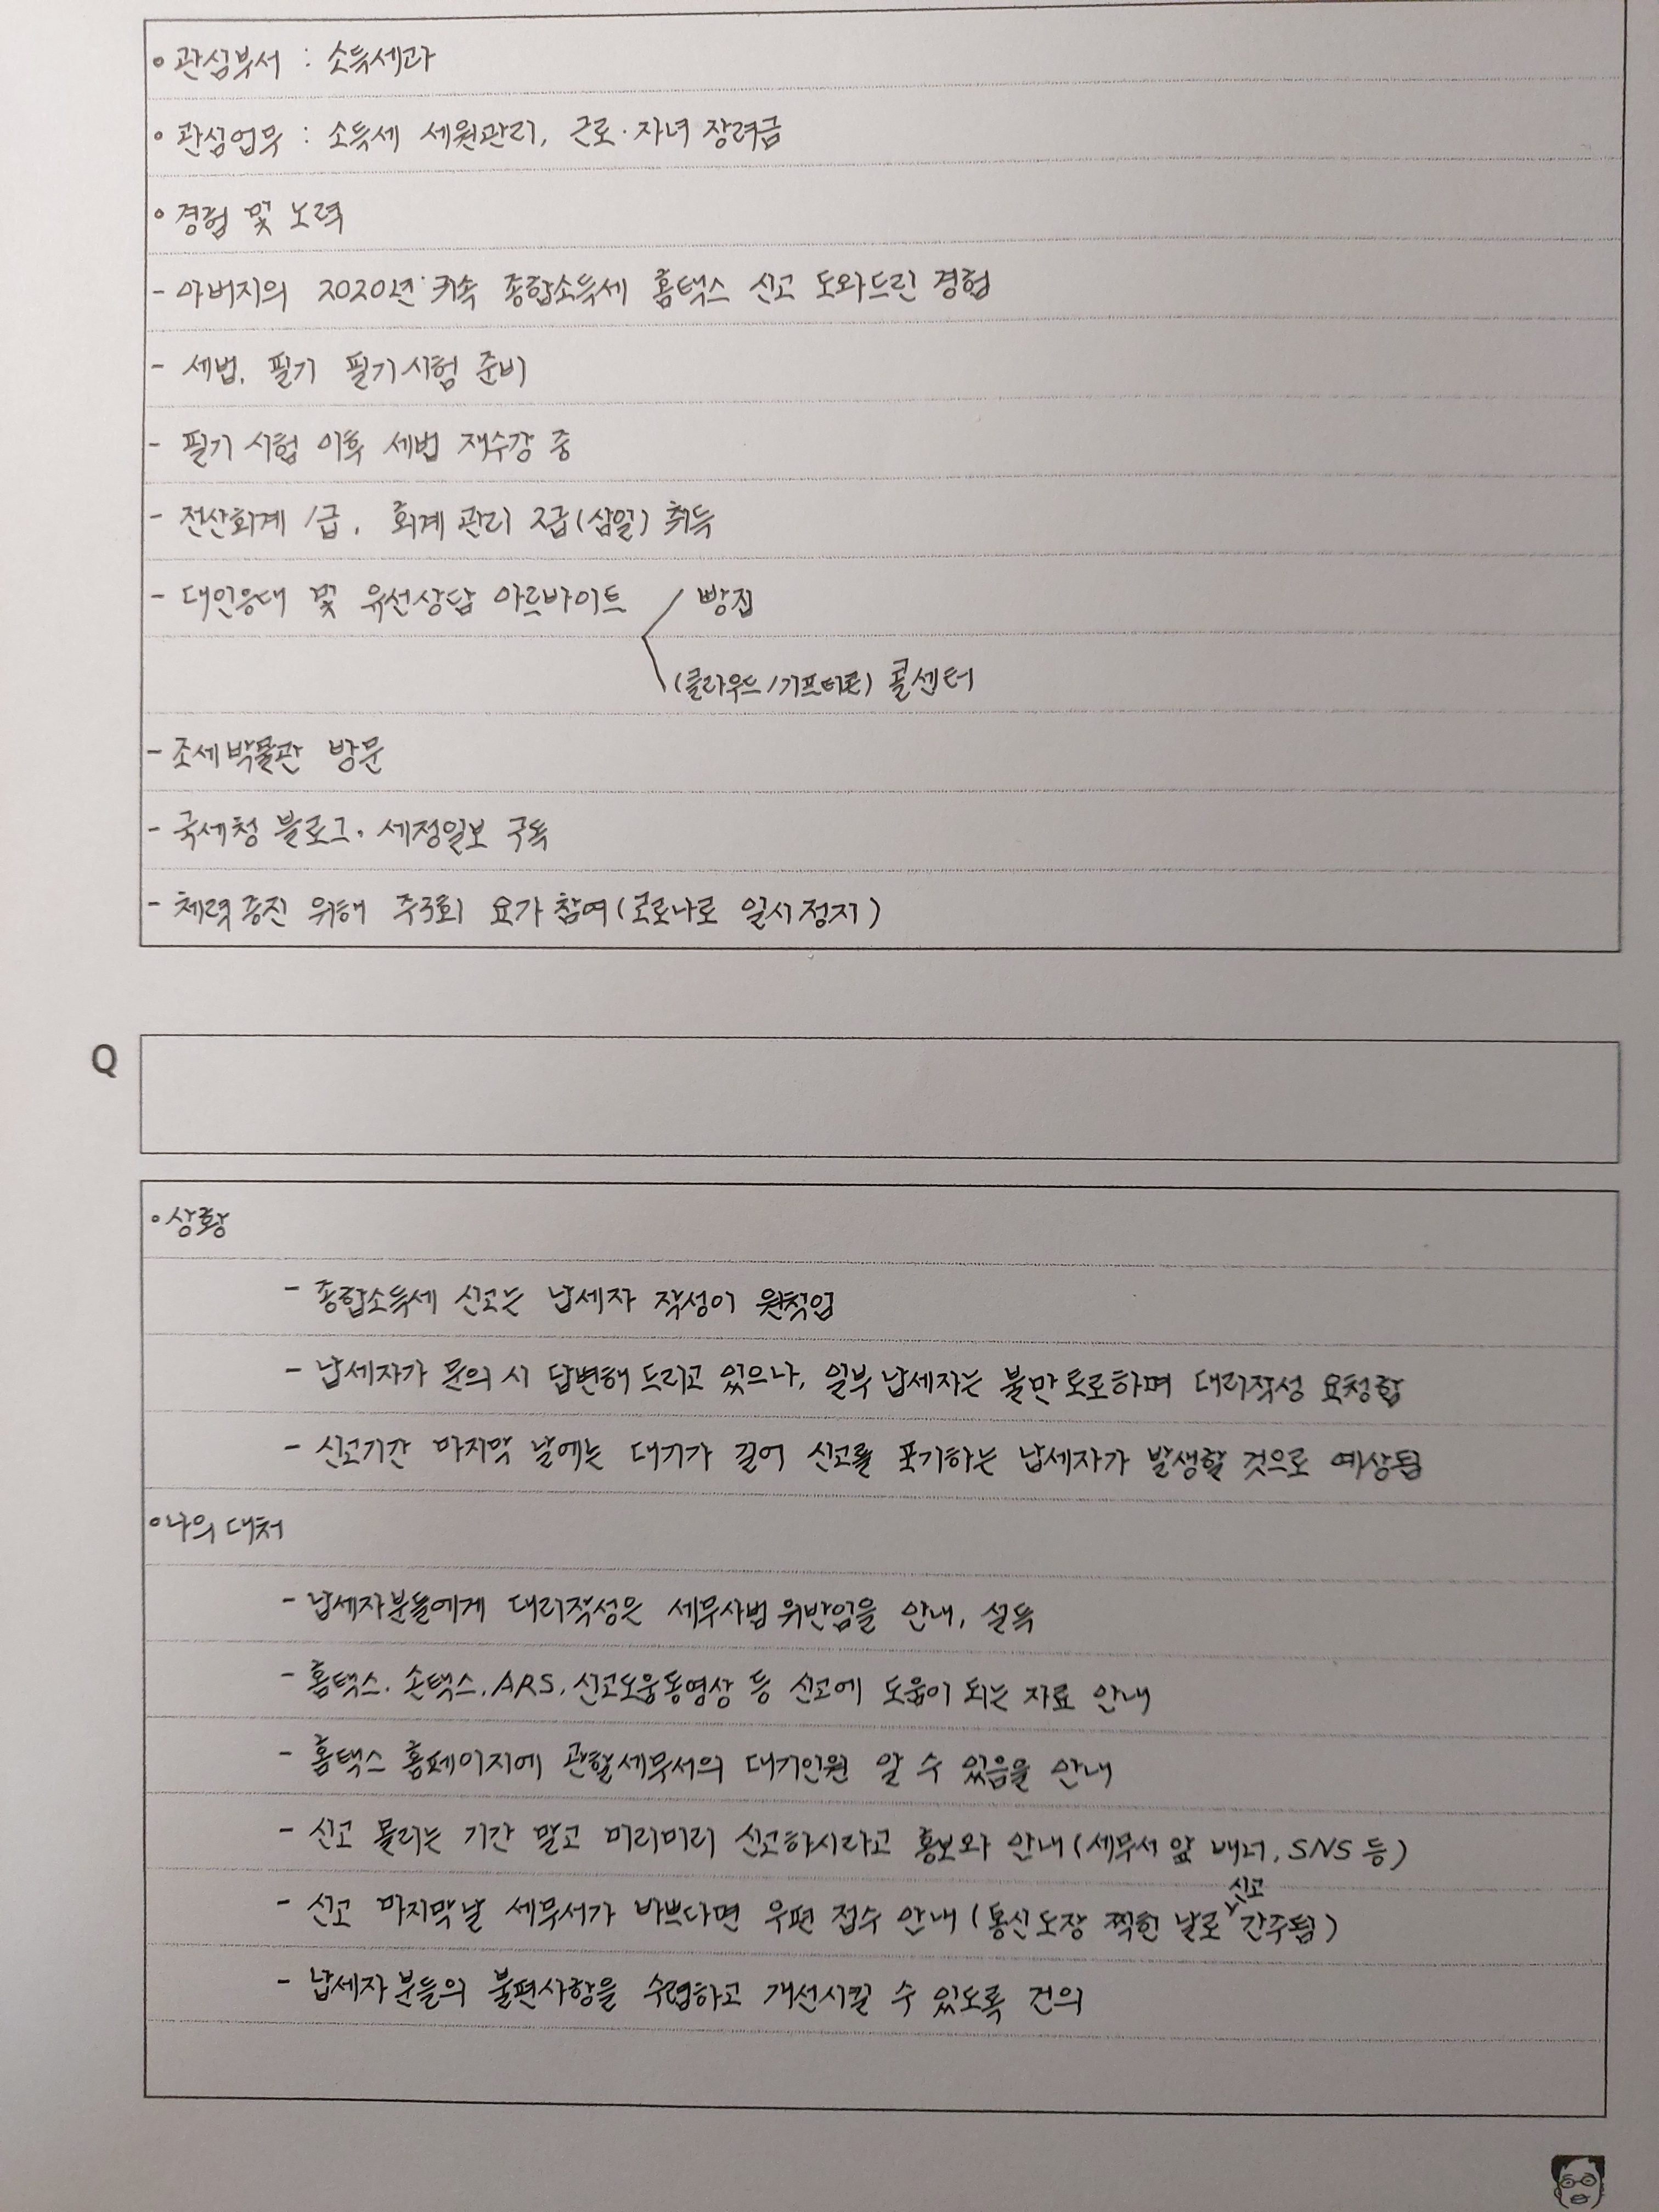 ◦ 관심부서 : 소득세과
◦ 관심업무 : 소득세 세원관리, 근로·자녀 장려금
◦ 경험 및 노력
- 아버지의 2020년 귀속 종합소득세 홈택스 신고 도와드린 경험
- 세법, 필기 필기시험 준비
- 필기시험 이후 세법 재수강 중
- 전산회계 1급, 회계관리 2급(삼일) 취득
- 대인응대 및 유선상담 아르바이트 빵집
(클라우드/기프티콘) 콜센터
- 조세박물관 방문
- 국세청 블로그, 세정일보 구독
- 체력증진 위해 주3회 요가 참여(코로나로 일시정지)
Q
◦ 상황
- 종합소득세 신고는 납세자 작성이 원칙임
- 납세자가 문의 시 답변해 드리고 있으나, 일부 납세자는 불만 토로하며 대리작성 요청함
- 신고기간 마지막 날에는 대기가 길어 신고를 포기하는 납세자가 발생할 것으로 예상됨
◦ 나의 대처
- 납세자분들에게 대리작성은 세무사법 위반임을 안내, 설득
- 홈택스, 손택스, ARS, 신고도움동영상 등 신고에 도움이 되는 자료 안내
- 홈택스 홈페이지에 관할세무서의 대기인원 알 수 있음을 안내
- 신고 몰리는 기간 말고 미리미리 신고하시라고 홍보와 안내(세무서 앞 배너, SNS 등)
- 신고 마지막날 세무서가 바쁘다면 우편 접수 안내 (통신도장 찍힌 날로 신고 간주됨)
- 납세자분들의 불편사항을 수렴하고 개선시킬 수 있도록 건의